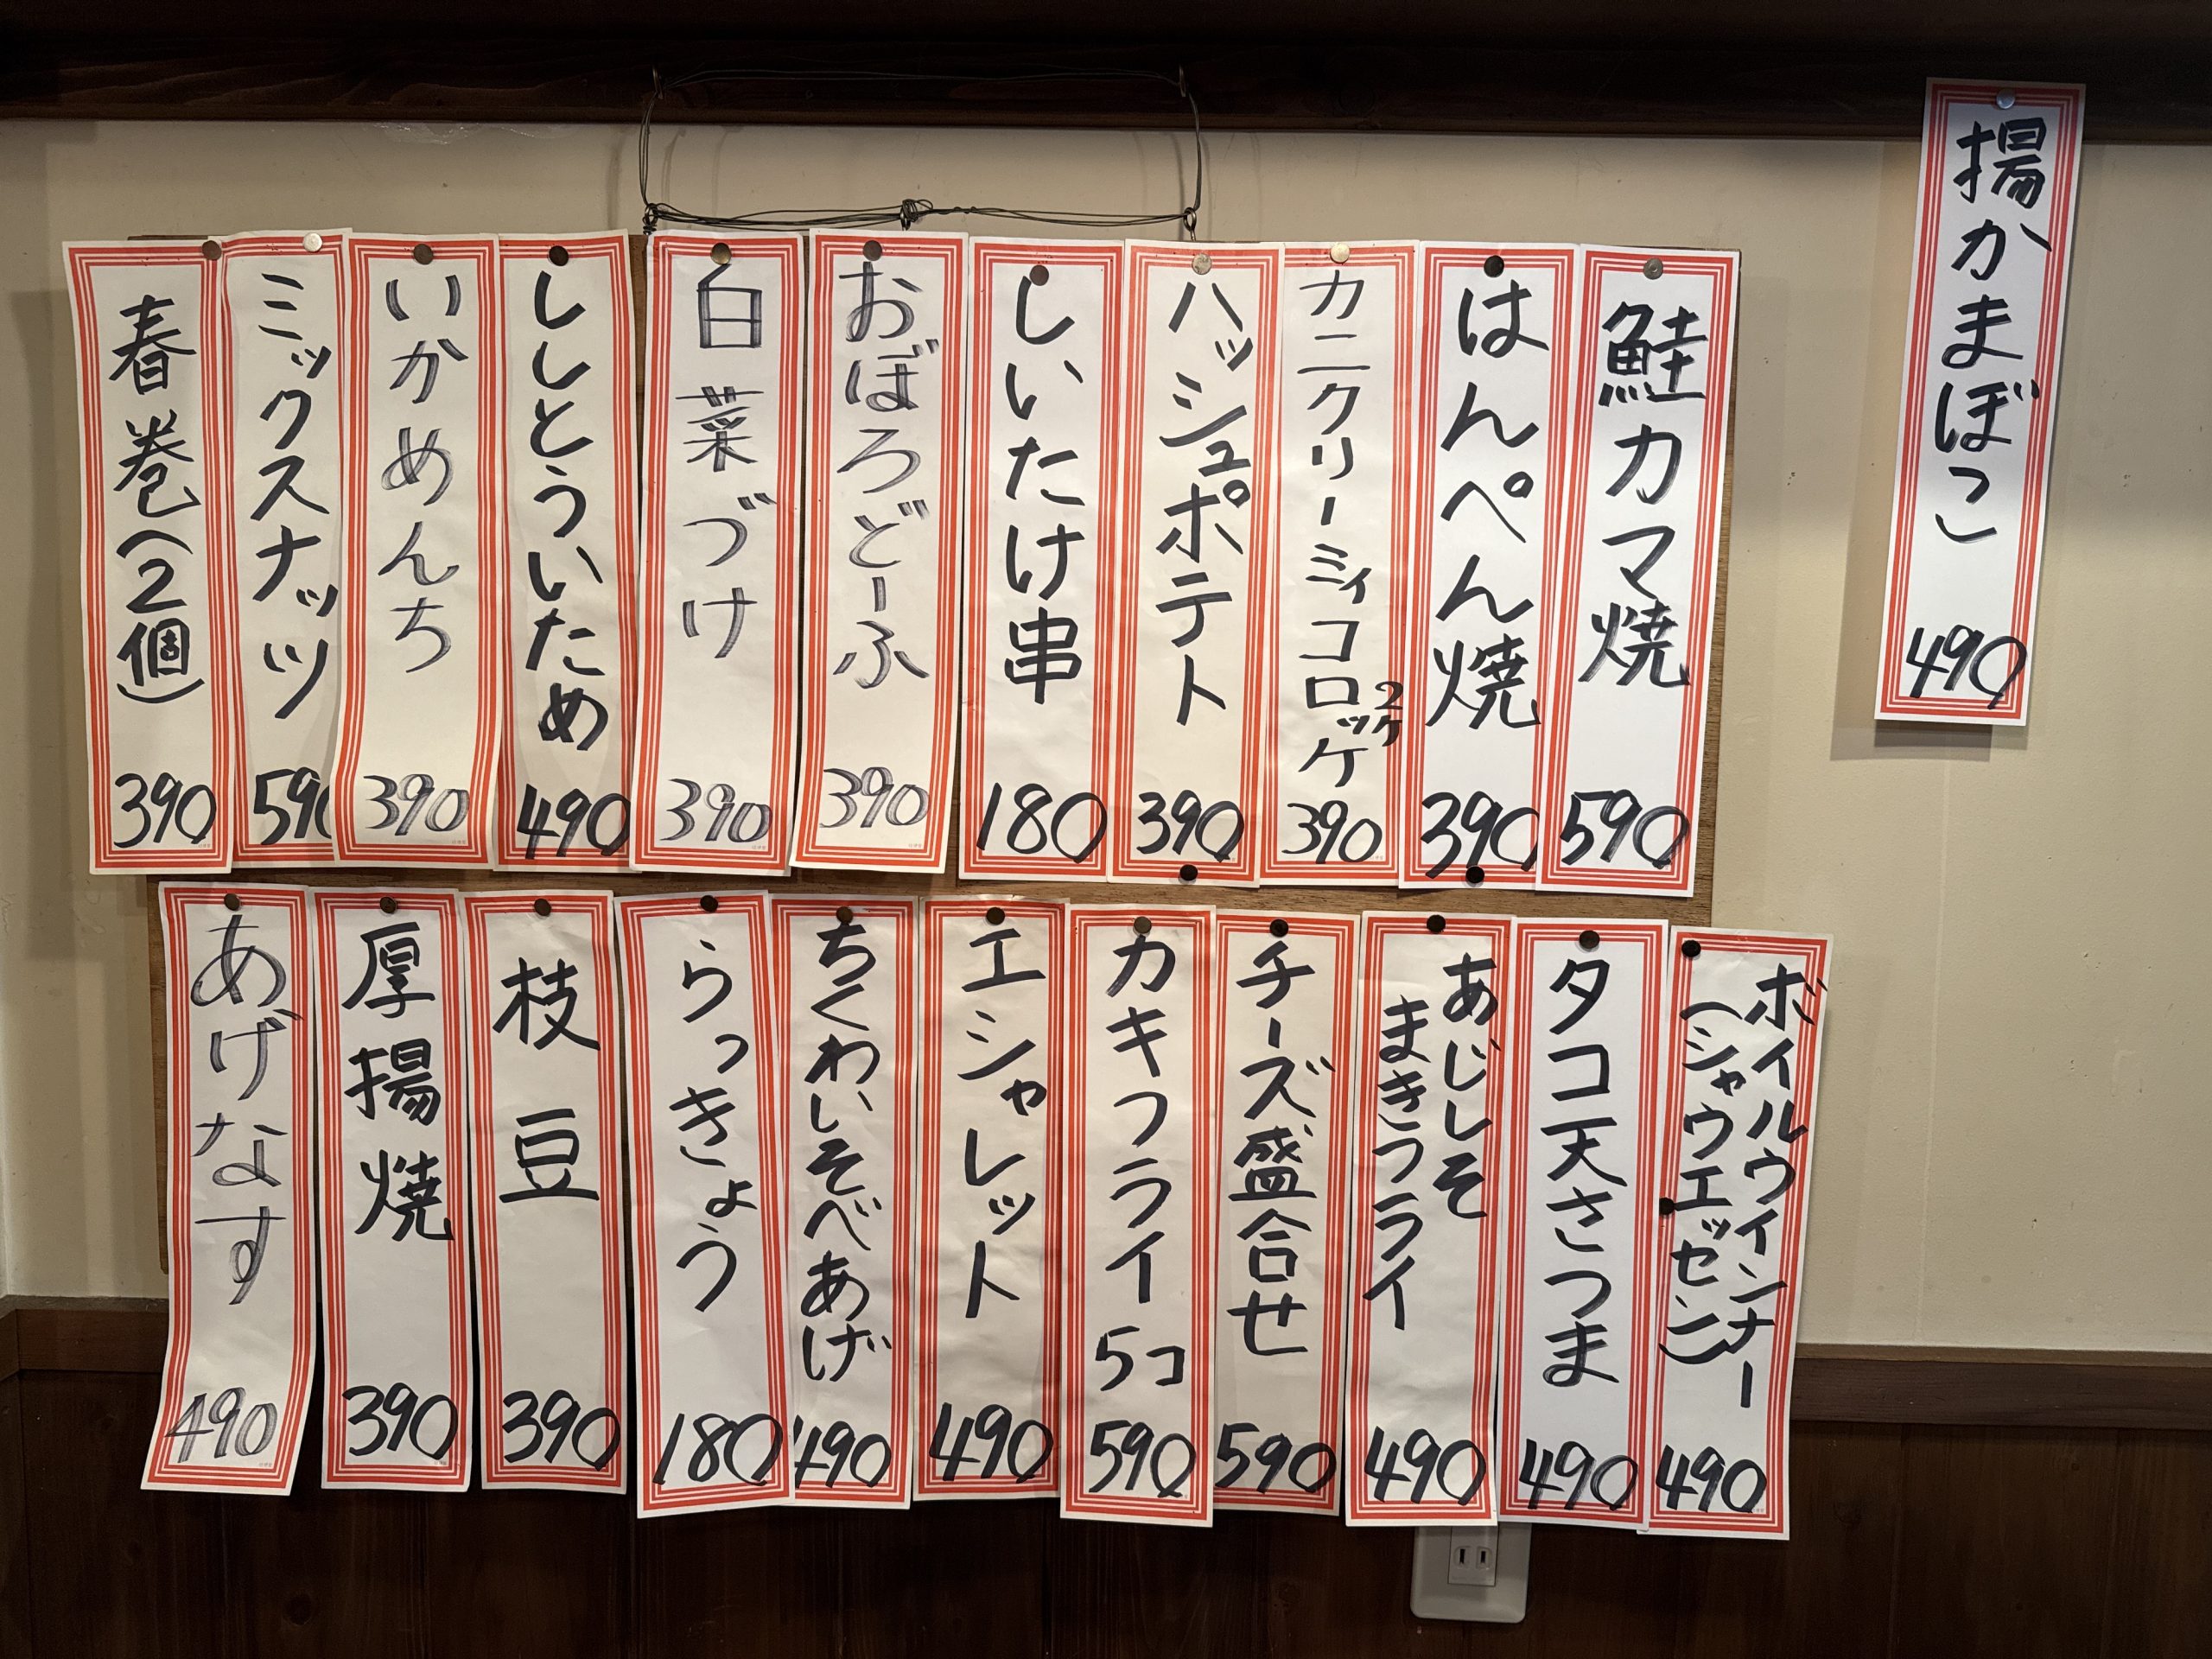 揚かまぼこ
490
鮭カマ焼
590
はんぺん焼
390
カニクリーミィコロッケ
2ケ
390
ハッシュポテト
390
しいたけ串
180
おぼろどーふ
390
白菜づけ
390
ししとういため
490
いかめんち
390
ミックスナッツ
590
春巻(2個)
390
ボイルウインナー
(シャウエッセン)
490
タコ天さつま
490
あじしそ
まきフライ
490
チーズ盛合せ
590
カキフライ
5コ
590
エシャレット
490
ちくわいそべあげ
490
らっきょう
180
枝豆
390
厚揚焼
390
あげなす
490